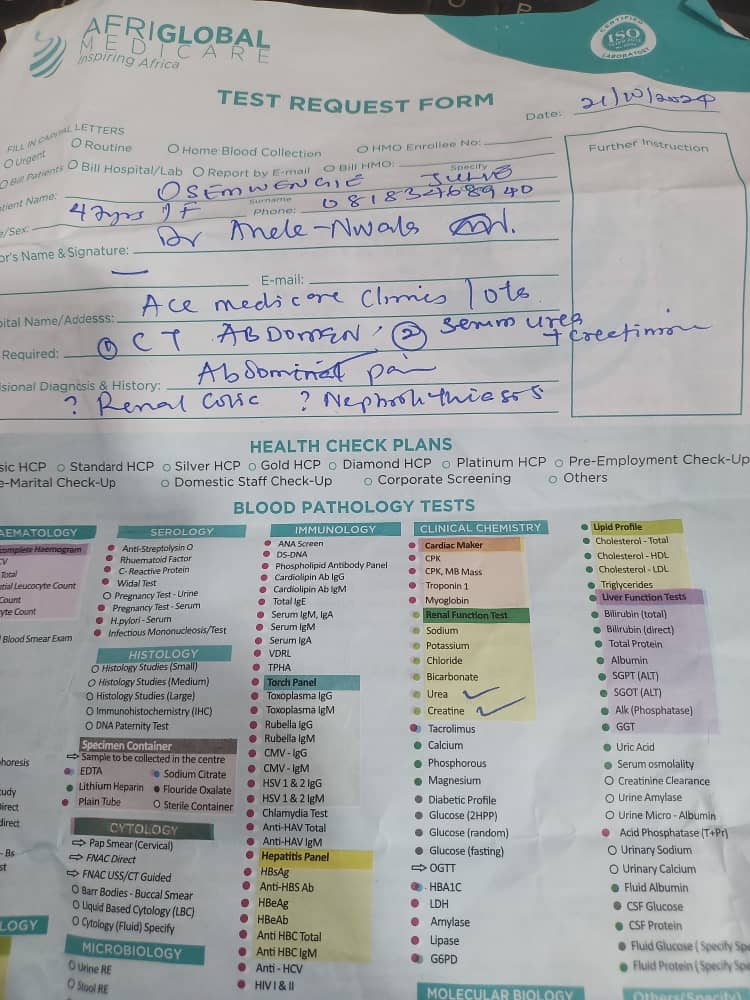 AFRIGLOBAL
MEDICARE
Inspiring Africa
CERTIFIED
ISO
LABORATORY
TEST REQUEST FORM
Date: 21/10/2024
FILL IN CAPITAL LETTERS
O Urgent O Routine O Home Blood Collection O HMO Enrollee No:
O Bill Patients O Bill Hospital/Lab O Report by E-mail O Bill HMO: Specify
Further Instruction
tient Name: OSEMWENGIE
Surname
e/Sex: 47yrs / F Phone: 08183268940
or's Name & Signature: Dr Anele-Nwala
E-mail:
pital Name/Addesss: Ace medicare Clinics / Ota
Required: ① CT ABDOMEN, ② Serum urea
+ creatinine
isional Diagnosis & History: Abdominal pain
? Renal colic ? Nephrolithiasis
HEALTH CHECK PLANS
sic HCP O Standard HCP O Silver HCP O Gold HCP O Diamond HCP O Platinum HCP O Pre-Employment Check-Up
e-Marital Check-Up O Domestic Staff Check-Up O Corporate Screening O Others
BLOOD PATHOLOGY TESTS
AEMATOLOGY
omplete Haemogram
CV
Total
tial Leucocyte Count
Count
yte Count
Blood Smear Exam
horesis
udy
irect
direct
- Bs
st
LOGY
SEROLOGY
Anti-Streptolysin O
Rhuematoid Factor
C- Reactive Protein
Widal Test
O Pregnancy Test - Urine
Pregnancy Test - Serum
H.pylori - Serum
Infectious Mononucleosis/Test
HISTOLOGY
O Histology Studies (Small)
O Histology Studies (Medium)
O Histology Studies (Large)
O Immunohistochemistry (IHC)
O DNA Paternity Test
Specimen Container
⇨ Sample to be collected in the centre
EDTA
Sodium Citrate
Lithium Heparin
Flouride Oxalate
Plain Tube
O Sterile Container
CYTOLOGY
⇨ Pap Smear (Cervical)
⇨ FNAC Direct
⇨ FNAC USS/CT Guided
O Barr Bodies - Buccal Smear
O Liquid Based Cytology (LBC)
O Cytology (Fluid) Specify
MICROBIOLOGY
O Urine RE
O Stool RE
IMMUNOLOGY
ANA Screen
DS-DNA
Phospholipid Antibody Panel
Cardiolipin Ab IgG
Cardiolipin Ab IgM
Total IgE
Serum IgM, IgA
Serum IgM
Serum IgA
VDRL
TPHA
Torch Panel
Toxoplasma IgG
Toxoplasma IgM
Rubella IgG
Rubella IgM
CMV - IgG
CMV - IgM
HSV 1 & 2 IgG
HSV 1 & 2 IgM
Chlamydia Test
Anti-HAV Total
Anti-HAV IgM
Hepatitis Panel
HBsAg
Anti-HBS Ab
HBeAg
HBeAb
Anti HBC Total
Anti HBC IgM
Anti - HCV
HIV I & II
CLINICAL CHEMISTRY
Cardiac Maker
CPK
CPK, MB Mass
Troponin 1
Myoglobin
Renal Function Test
Sodium
Potassium
Chloride
Bicarbonate
Urea ✓
Creatine ✓
Tacrolimus
Calcium
Phosphorous
Magnesium
Diabetic Profile
Glucose (2HPP)
Glucose (random)
Glucose (fasting)
⇨ OGTT
HBA1C
LDH
Amylase
Lipase
G6PD
MOLECULAR BIOLOGY
Lipid Profile
Cholesterol - Total
Cholesterol - HDL
Cholesterol - LDL
Triglycerides
Liver Function Tests
Bilirubin (total)
Bilirubin (direct)
Total Protein
Albumin
SGPT (ALT)
SGOT (ALT)
Alk (Phosphatase)
GGT
Uric Acid
Serum osmolality
O Creatinine Clearance
O Urine Amylase
O Urine Micro - Albumin
Acid Phosphatase (T+Pr)
O Urinary Sodium
O Urinary Calcium
Fluid Albumin
CSF Glucose
CSF Protein
Fluid Glucose ( Specify Spe
Fluid Protein ( Specify Spe
Others(Specify)